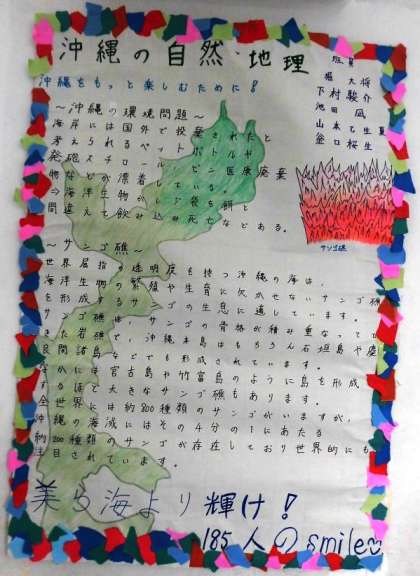 沖縄の自然・地理
沖縄をもっと楽しむために！
班員
堀 大将
下村 駿介
池田 凪
山本 乙生
釜口 桜生
～沖縄の環境問題～
海岸には国外で投棄されたと
考えられるペットボトルや
発砲スチロール、ビン、医療廃棄
物などが漂着している。
⇒海洋生物がビニール袋を餌と
間違えて飲み込み死亡などある。
サンゴ礁
～サンゴ礁～
世界屈指の透明度を持つ沖縄の海は、
海洋生物の繁殖や生育に欠かせないサンゴ礁
を形成するサンゴの生息に適しています。
サンゴ礁は、サンゴの骨格が積み重なって
きた岩礁で、沖縄本島はもちろん石垣島や慶
良間諸島などでも形成されています。
なかには宮古島や竹富島のように島を形成
するほど大きなサンゴ礁もあります。
全世界には約800種類のサンゴがいますが、
沖縄の海域にはその4分の1にあたる
約200種類のサンゴが存在しており世界的にも
注目されています。
美ら海より輝け！
185人のsmile